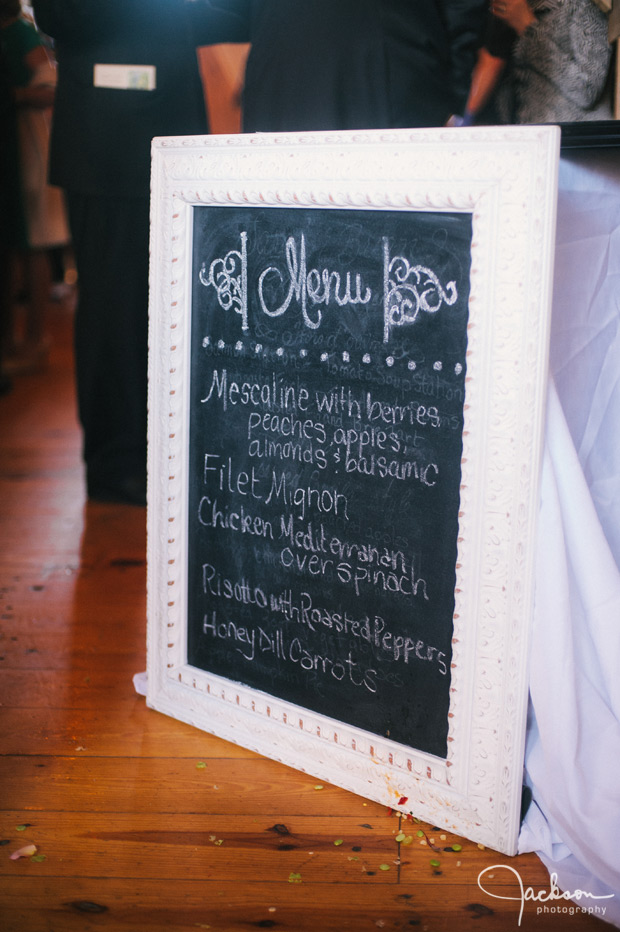 Menu
Mescaline with berries
peaches, apples,
almonds & balsamic
Filet Mignon
Chicken Mediterranan
over spinach
Risotto with Roasted Peppers
Honey Dill Carrots
Jackson
photography